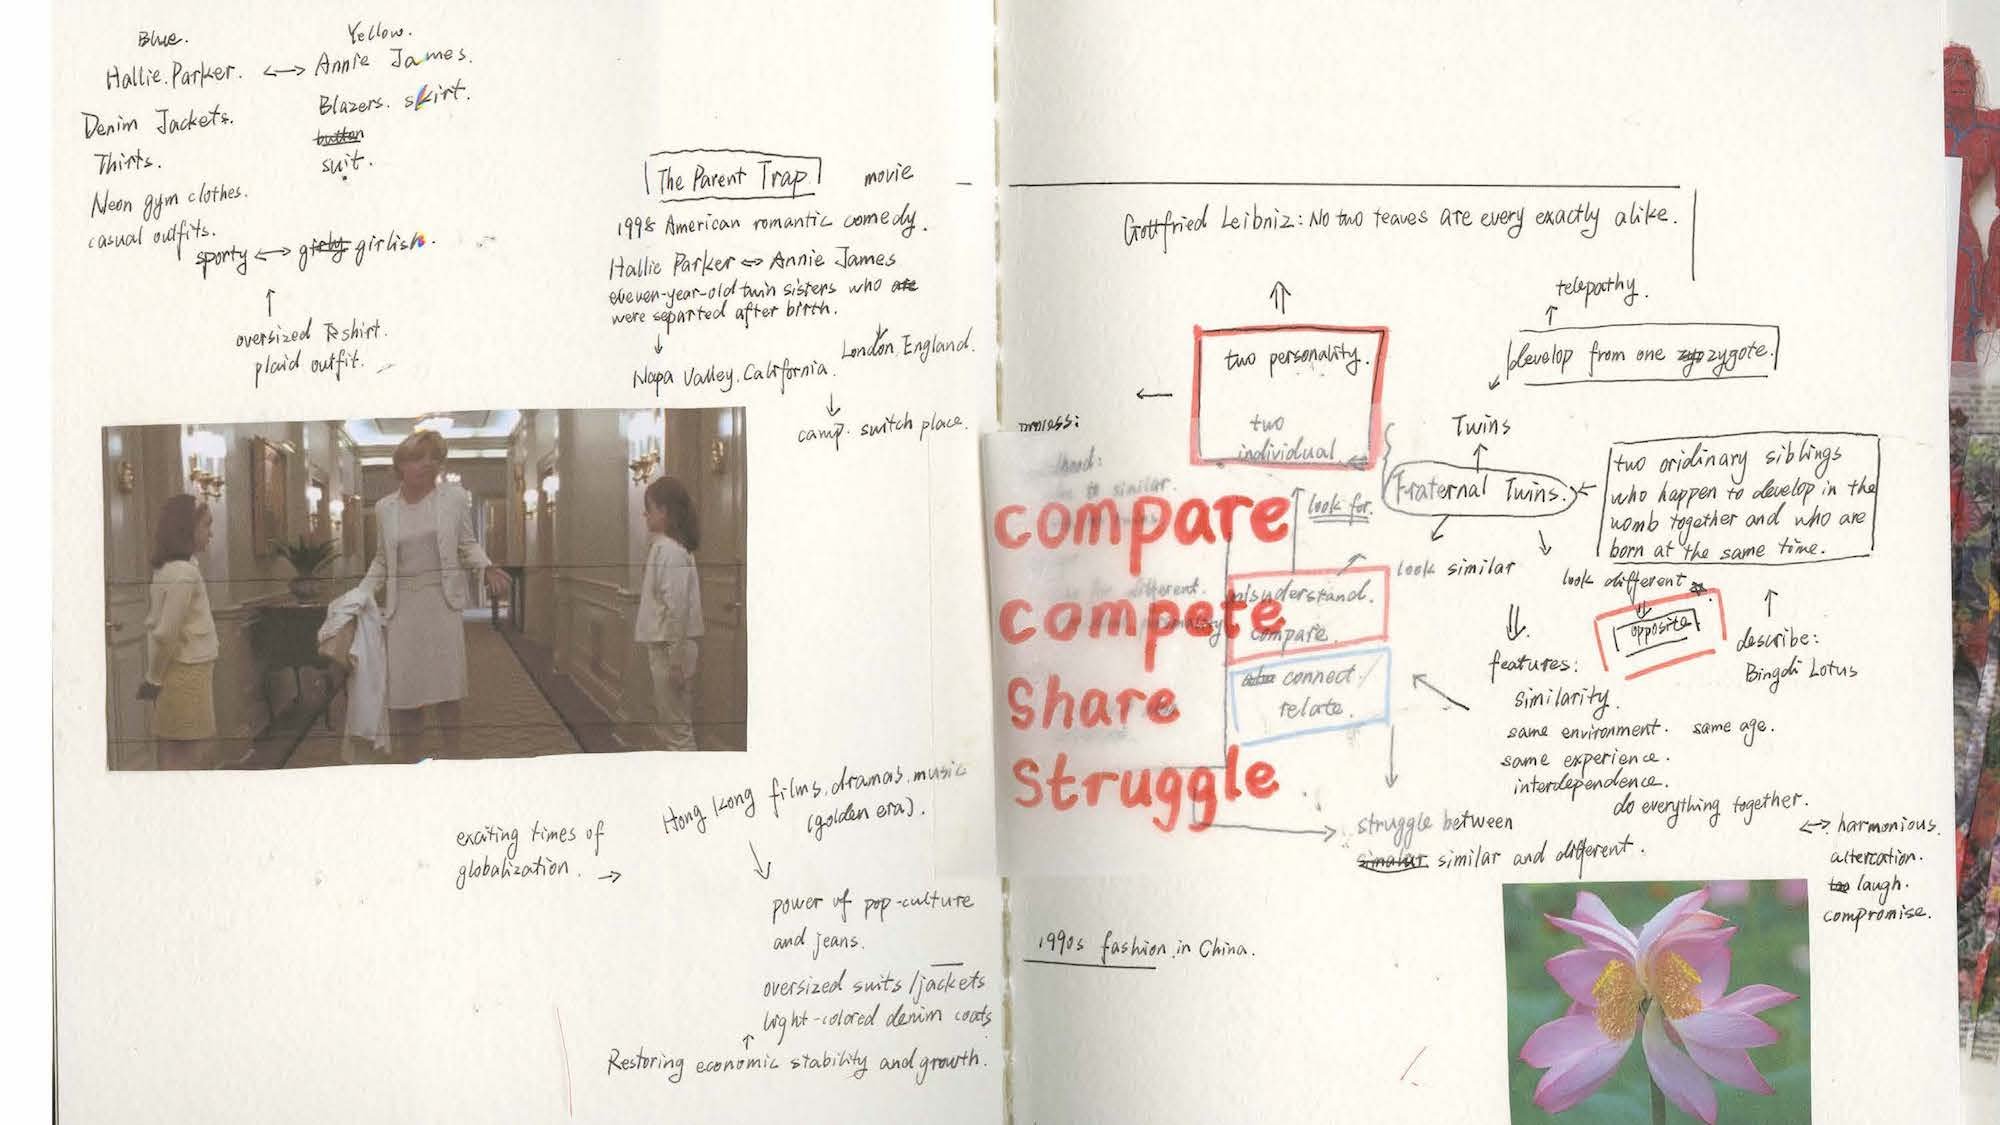 Blue.
Yellow.
Hallie.Parker. <-> Annie James.
Denim Jackets.
Blazers. skirt.
button
Thirts.
suit.
Neon gym clothes.
casual outfits.
sporty <-> girly girlish.
oversized T-shirt.
plaid outfit.
The Parent Trap
movie
1998 American romantic comedy.
Hallie Parker <-> Annie James
eleven-year-old twin sisters who are
were separted after birth.
London, England.
Napa Valley. California.
camp. switch place.
exciting times of
globalization. ->
Hong Kong films, dramas, music
(golden era).
power of pop-culture
and jeans.
oversized suits/jackets
light-colored denim coats
Restoring economic stability and growth.
Gottfried Leibniz: No two leaves are every exactly alike.
telepathy.
develop from one zygote.
two personality.
two
individual
Twins
Fraternal Twins.
two oridinary siblings
who happen to develop in the
womb together and who are
born at the same time.
look for.
look similar
look different
opposite
describe:
Bingdi Lotus
to similar.
different.
compare
compete
Share
Struggle
misunderstand.
compare.
connect /
relate.
features:
similarity.
same environment. same age.
same experience.
interdependence.
do everything together.
<-> harmonious.
altercation.
laugh.
compromise.
struggle between
similar and different.
1990s fashion in China.